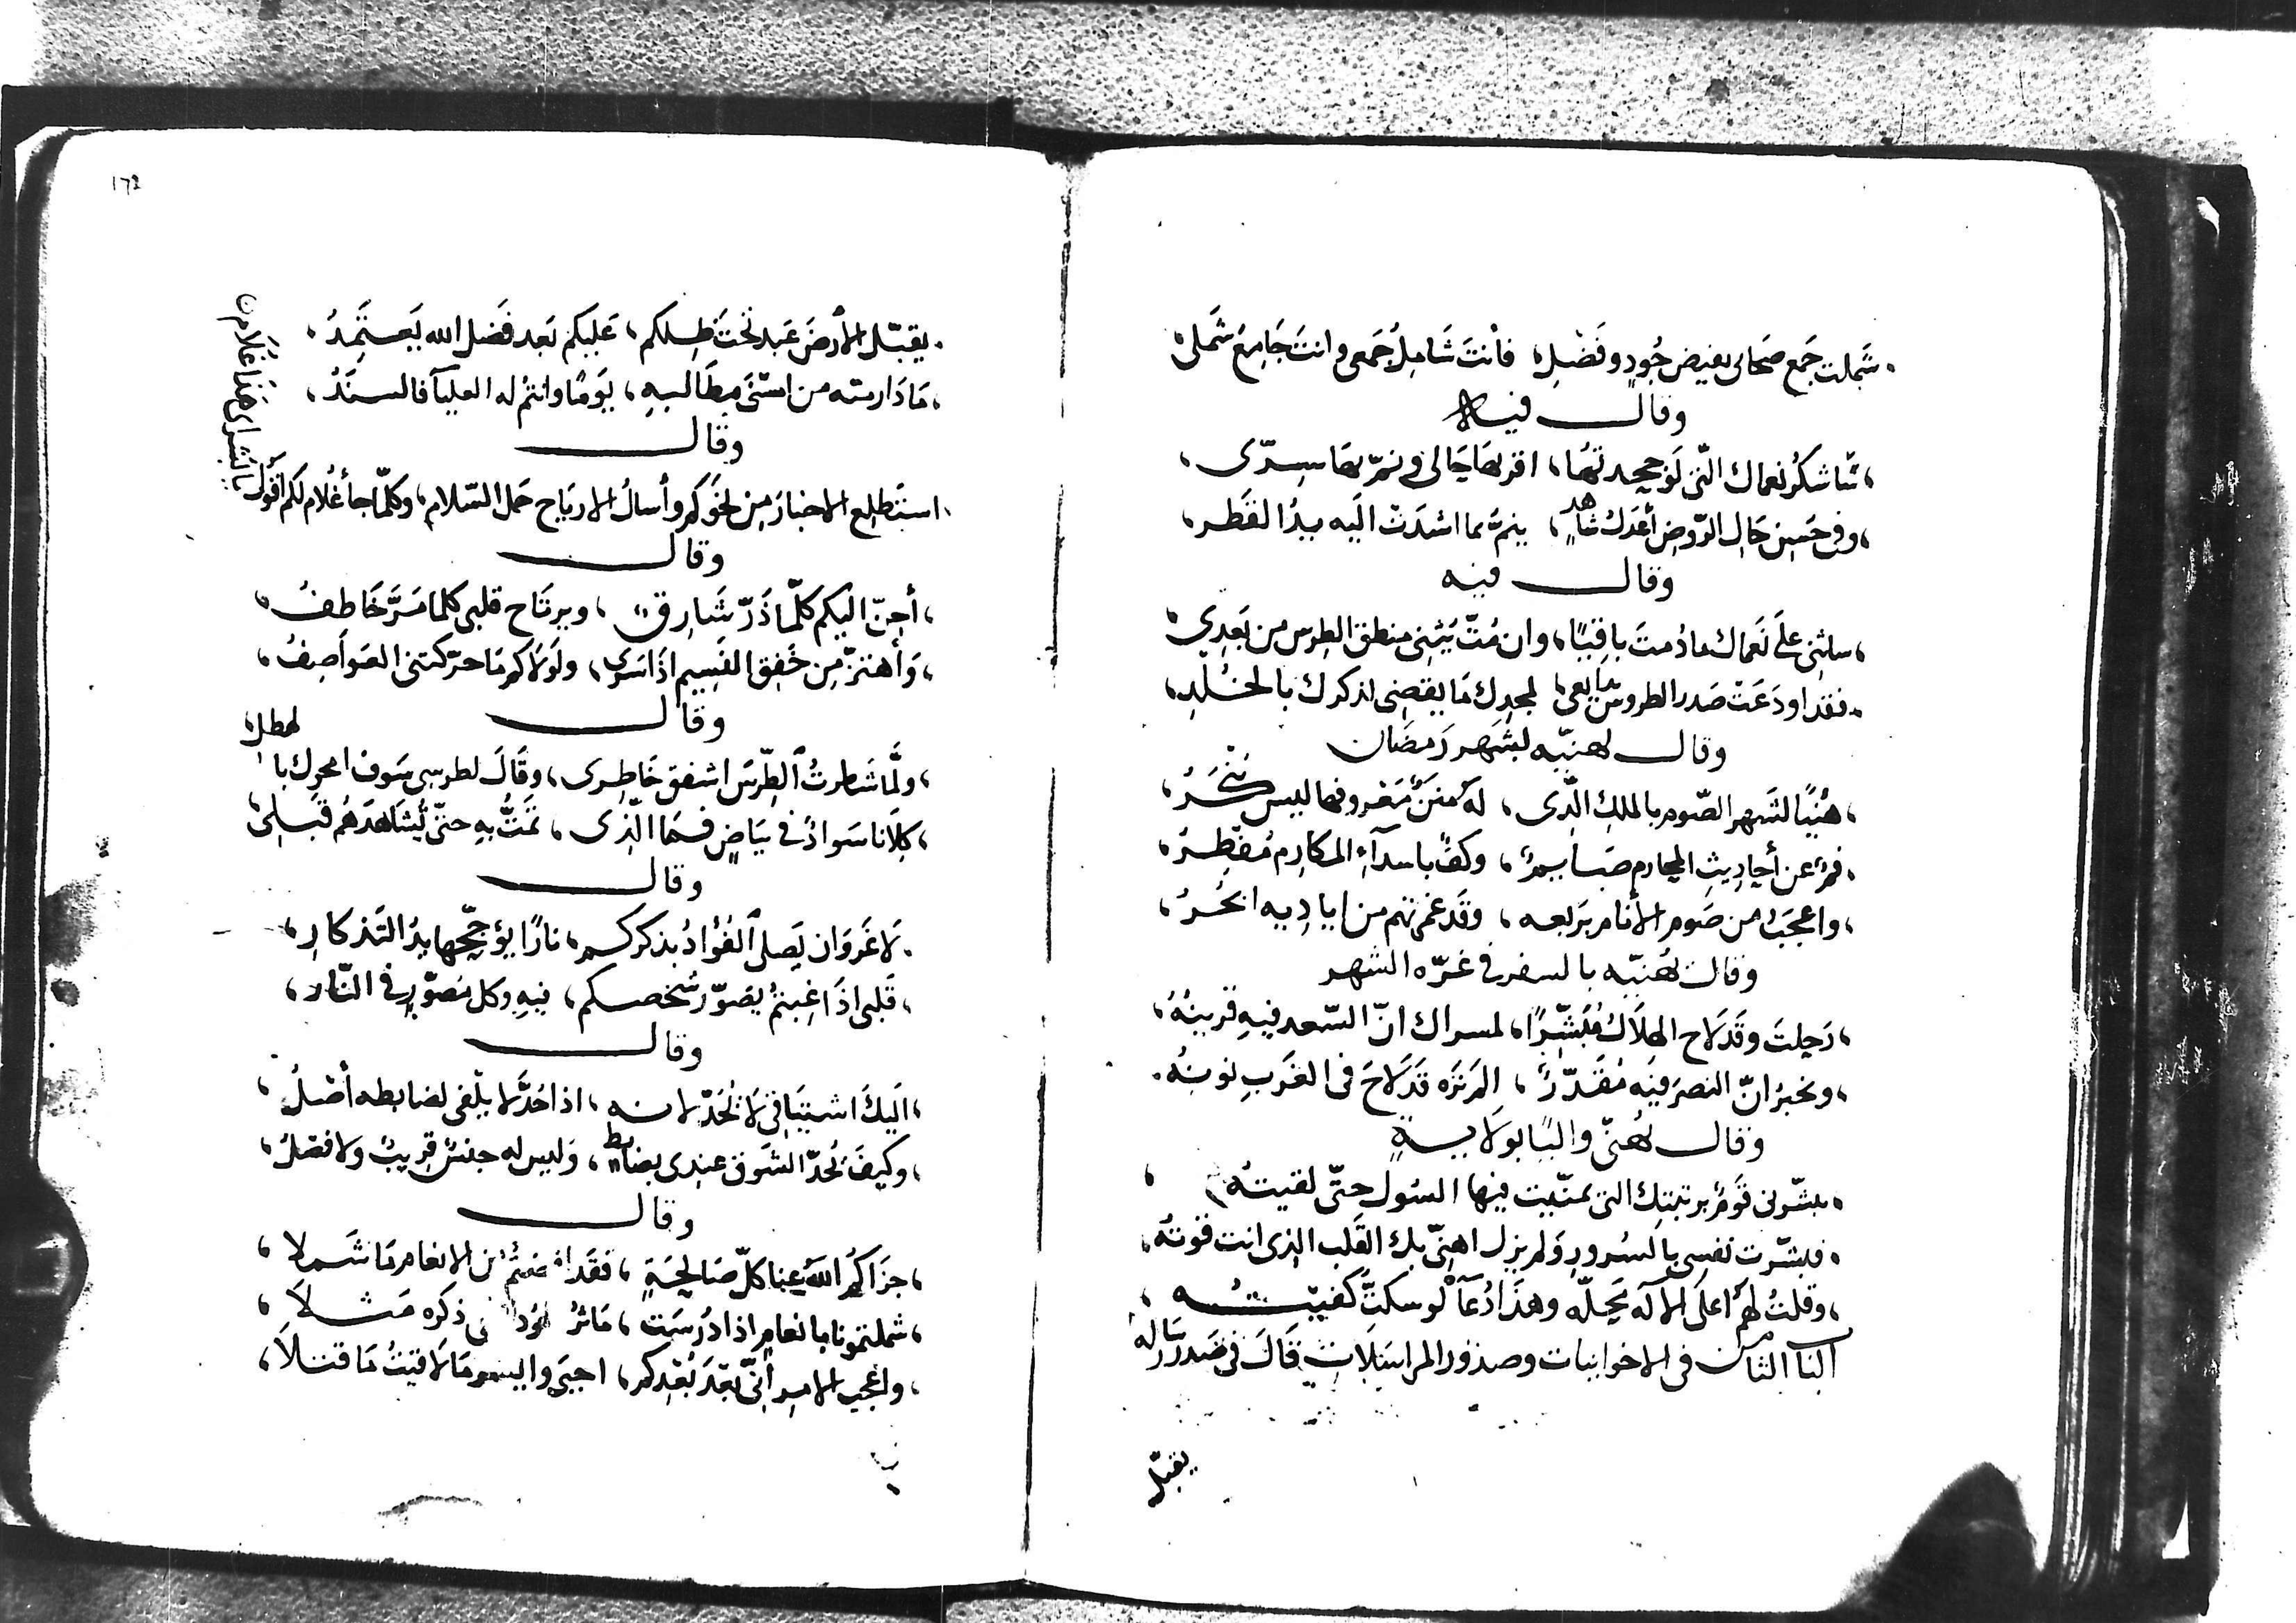 شملت جمع صحابى بفيض جُودٍ وفَضْلِ، فأنتَ شَامِلُ جَمعى وانتَ جَامِعُ شَملى،
وقال فيه
سَاشكُر نعماك التّى لَو جحدتهَا، اقر بهَا حَالى ونمّ بهَا سِرّى،
وفى حَسن حَال الرّوض أعْدَلُ شاهدٍ، ينمّ بما اسْدَتْ اليه يدُ القَطرِ،
وقال فيه
ساثنى عَلَى نَعماك ما دُمتَ باقيًا، وان مُتّ يُثنِى منطق الطِرس من بَعدِي،
فقد اودَعَتْ صَدر الطروس بدايعى، لمجدِك مَا يقضِى لذكرك بالخُلدِ،
وقال يهنيّه بشهر رَمضَان
هَنيًا لشَهر الصّوم بالملكِ الّذى، لهُ مننٌ مَعروفها ليس يُنكَرُ،
فمٌ عن أحاديثِ المحارم صَايمٌ، وكفٌ باسدآءِ المكارِم مُفْطِرُ،
واعجَبُ من صَوم الأنام برَبعه، وقَد غمرتهم من اياديه ابحُرُ،
وقال يُهنيّه بالسفر فى غرّه الشهر
رَحلتَ وقَد لاح الهِلاَلُ مُبَشّرًا، لمسراك انّ السّعد فيهِ قرينُهُ،
وتخبرُ انّ النصرَ فيه مُقَدّرٌ، الم تره قَد لاحَ فى الغَربِ نونهُ.
وقال يُهَنّى واليًا بولايةٍ
بشّرنى قَومٌ برتبتك التى تمنّيت فيها السُول حتّى لقيتهُ،
فبشّرت نفسى بالسُرورِ ولم يزل اهنّى بك القَلب الذى انت قوتُهُ،
وقلتُ لهم اعلى الآله مَحلّه وهذَا دُعآءٌ لو سكتُّ كُفيتُه،
الباب الثامن فى الاخوانيات وصدُور المراسَلاَتِ قَالَ فى صَدر رسَاله
يقبّل
١٦٢
يقبّل الأرضَ عَبد تحتَ ظِلكم، عَليكم بَعد فَضل الله يَعتَمِدُ،
مَا دار مته من اسْنَى مطَالبهِ، يَومًا وانتم له العليآ فالسنَدُ،
وقال
استَطلع الاخبارَ مِن نحوَكم وأسالُ الارياح حَمل السّلام، وكلّما جأ غُلام لكم اقُولُ يا بُشراى هَذا غلاَم
وقال
أحِنّ اليكم كلّما ذَرّ شَارِقٌ، ويرتَاح قلبى كلما مَرَّ خَاطفُ،
وَأهتزّ مِن خَفِق النَسِيم اذَا سَرى، ولَولاَكم مَا حرّكتنى العَواصِفُ،
وقال
ولمَّا سَطرتُ الطّرسَ اشفق خَاطِرى، وقَالَ لطرسى سَوف امحِك بالهطلِ،
كِلاَنا سَوادٌ فى بيَاضٍ فمَا الّذى، تَمتُّ بهِ حتّى تُشَاهدَهُم قبَلِى،
وقال
لاَ غَروَ ان يَصلَى الفُؤادُ بذكركم، نارًا يؤجّجها يدُ التَذكارِ،
قَلبى اذَا غبتمُ يصَوّرُ شخصكم، فيهِ وكل مُصَوّرٍ فى النّار،
وقال
اليكَ اشتيَاقى لاَ يُحَدّ لانه، اذا حُدَّ لا يلْفى لضابطه أصْلُ،
وكيفَ يُحدّ الشَوق عندى بضابطٍ، وَليس له جنسٌ قريبٌ ولا فصْلُ،
وقال
جزَاكُم اللهُ عنا كلّ صَالحَةٍ، فقَد من الانعام مَا شَملا،
شملتمونا بانعامٍ اذا دُرسَت، مَاثرُ الجُود فى ذكره مَثلاَ،
واعجب الامر أنّى بَعْدَ بُعْدِكم، احيَى وايسر مَا لاقيتُ مَا قتلاَ،